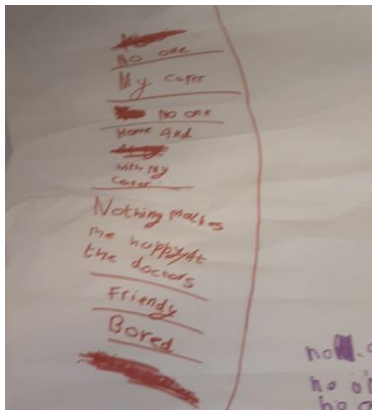 No one
My carer
No one
Home and
with my
carer.
Nothing makes
me happy At
the doctors
Friendy
Bored
no
no o